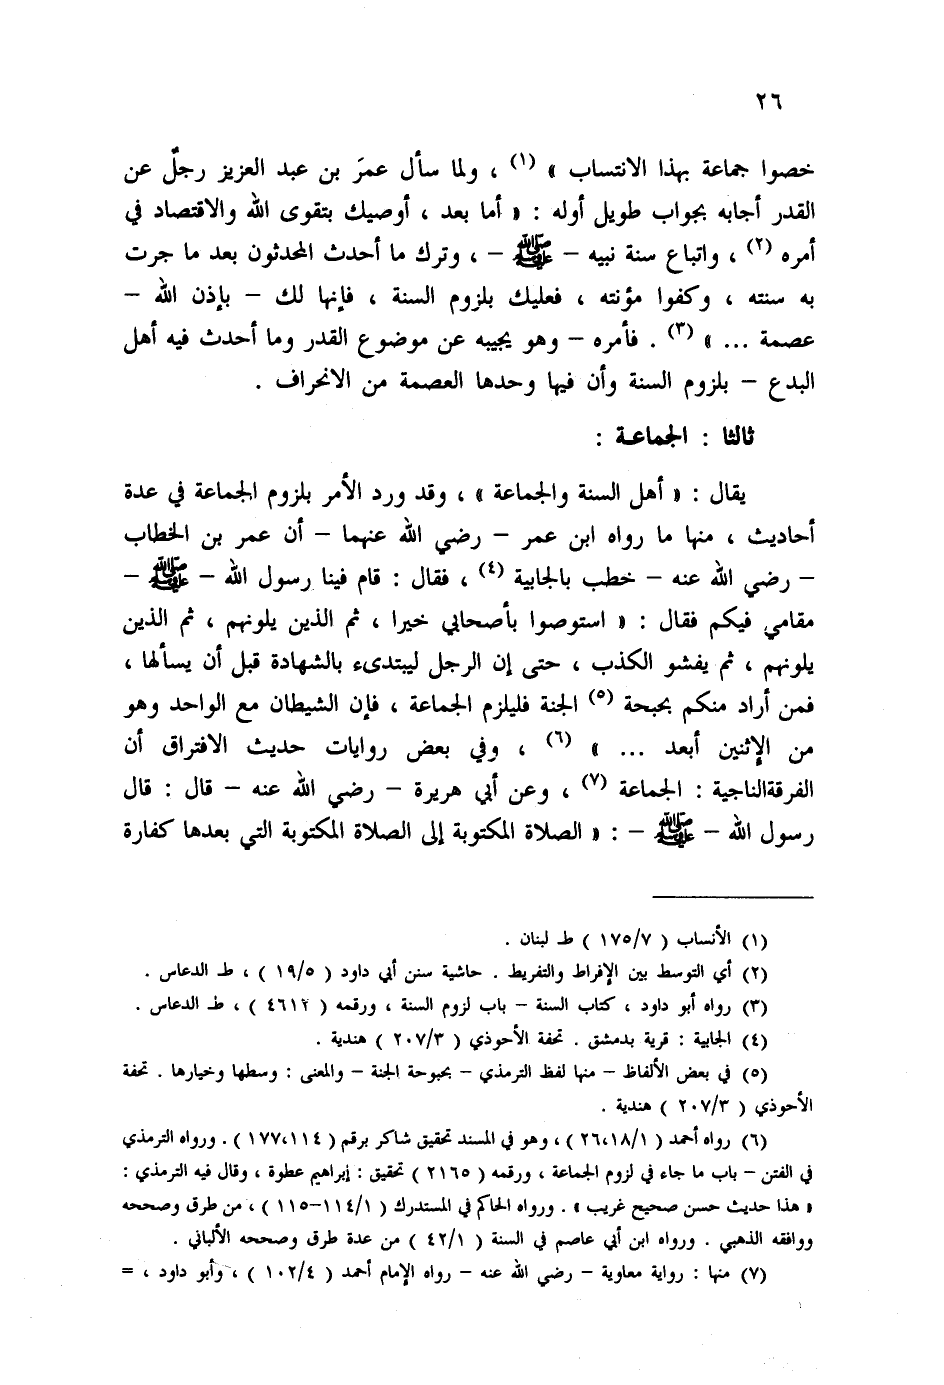 ٢٦
خصوا جماعة بهذا الانتساب » (١) ، ولما سأل عمرَ بن عبد العزيز رجلٌ عن
القدر أجابه بجواب طويل أوله : « أما بعد ، أوصيك بتقوى الله والاقتصاد في
أمره (٢) ، واتباع سنة نبيه – ﷺ – ، وترك ما أحدث المحدثون بعد ما جرت
به سنته ، وكفوا مؤنته ، فعليك بلزوم السنة ، فإنها لك – بإذن الله –
عصمة ... » (٣) . فأمره – وهو يجيبه عن موضوع القدر وما أحدث فيه أهل
البدع – بلزوم السنة وأن فيها وحدها العصمة من الانحراف .
ثالثا : الجماعة :
يقال : « أهل السنة والجماعة » ، وقد ورد الأمر بلزوم الجماعة في عدة
أحاديث ، منها ما رواه ابن عمر – رضي الله عنهما – أن عمر بن الخطاب
– رضي الله عنه – خطب بالجابية (٤) ، فقال : قام فينا رسول الله – ﷺ –
مقامي فيكم فقال : « استوصوا بأصحابي خيرا ، ثم الذين يلونهم ، ثم الذين
يلونهم ، ثم يفشو الكذب ، حتى إن الرجل ليبتدىء بالشهادة قبل أن يسألها ،
فمن أراد منكم بحبحة (٥) الجنة فليلزم الجماعة ، فإن الشيطان مع الواحد وهو
من الإثنين أبعد ... » (٦) ، وفي بعض روايات حديث الافتراق أن
الفرقةالناجية : الجماعة (٧) ، وعن أبي هريرة – رضي الله عنه – قال : قال
رسول الله – ﷺ – : « الصلاة المكتوبة إلى الصلاة المكتوبة التي بعدها كفارة
(١) الأنساب ( ١٧٥/٧ ) ط لبنان .
(٢) أي التوسط بين الإفراط والتفريط . حاشية سنن أبي داود ( ١٩/٥ ) ، ط الدعاس .
(٣) رواه أبو داود ، كتاب السنة – باب لزوم السنة ، ورقمه ( ٤٦١٢ ) ، ط الدعاس .
(٤) الجابية : قرية بدمشق . تحفة الأحوذي ( ٢٠٧/٣ ) هندية .
(٥) في بعض الألفاظ – منها لفظ الترمذي – بحبوحة الجنة – والمعنى : وسطها وخيارها . تحفة
الأحوذي ( ٢٠٧/٣ ) هندية .
(٦) رواه أحمد ( ٢٦،١٨/١ ) ، وهو في المسند تحقيق شاكر برقم ( ١٧٧،١١٤ ) . ورواه الترمذي
في الفتن – باب ما جاء في لزوم الجماعة ، ورقمه ( ٢١٦٥ ) تحقيق : إبراهيم عطوة ، وقال فيه الترمذي :
« هذا حديث حسن صحيح غريب » . ورواه الحاكم في المستدرك ( ١١٤/١–١١٥ ) ، من طرق وصححه
ووافقه الذهبي . ورواه ابن أبي عاصم في السنة ( ٤٢/١ ) من عدة طرق وصححه الألباني .
(٧) منها : رواية معاوية – رضي الله عنه – رواه الإمام أحمد ( ١٠٢/٤ ) ، وأبو داود ، =